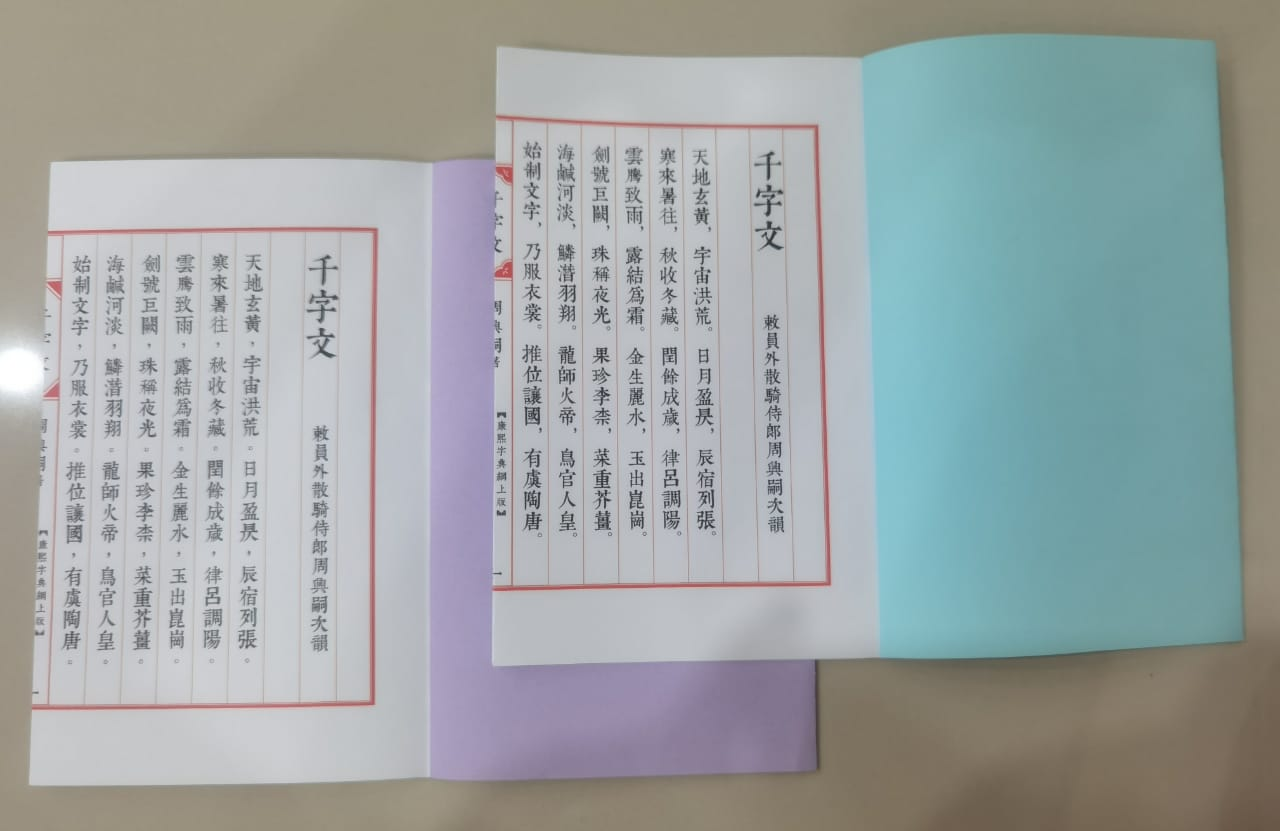 千字文
敕員外散騎侍郎周興嗣次韻
天地玄黃，宇宙洪荒。日月盈昃，辰宿列張。
寒來暑往，秋收冬藏。閏餘成歲，律呂調陽。
雲騰致雨，露結爲霜。金生麗水，玉出崑崗。
劍號巨闕，珠稱夜光。果珍李柰，菜重芥薑。
海鹹河淡，鱗潛羽翔。龍師火帝，鳥官人皇。
始制文字，乃服衣裳。推位讓國，有虞陶唐。
千字文
周興嗣著
【康熙字典網上版】
一
千字文
敕員外散騎侍郎周興嗣次韻
天地玄黃，宇宙洪荒。日月盈昃，辰宿列張。
寒來暑往，秋收冬藏。閏餘成歲，律呂調陽。
雲騰致雨，露結爲霜。金生麗水，玉出崑崗。
劍號巨闕，珠稱夜光。果珍李柰，菜重芥薑。
海鹹河淡，鱗潛羽翔。龍師火帝，鳥官人皇。
始制文字，乃服衣裳。推位讓國，有虞陶唐。
【康熙字典網上版】